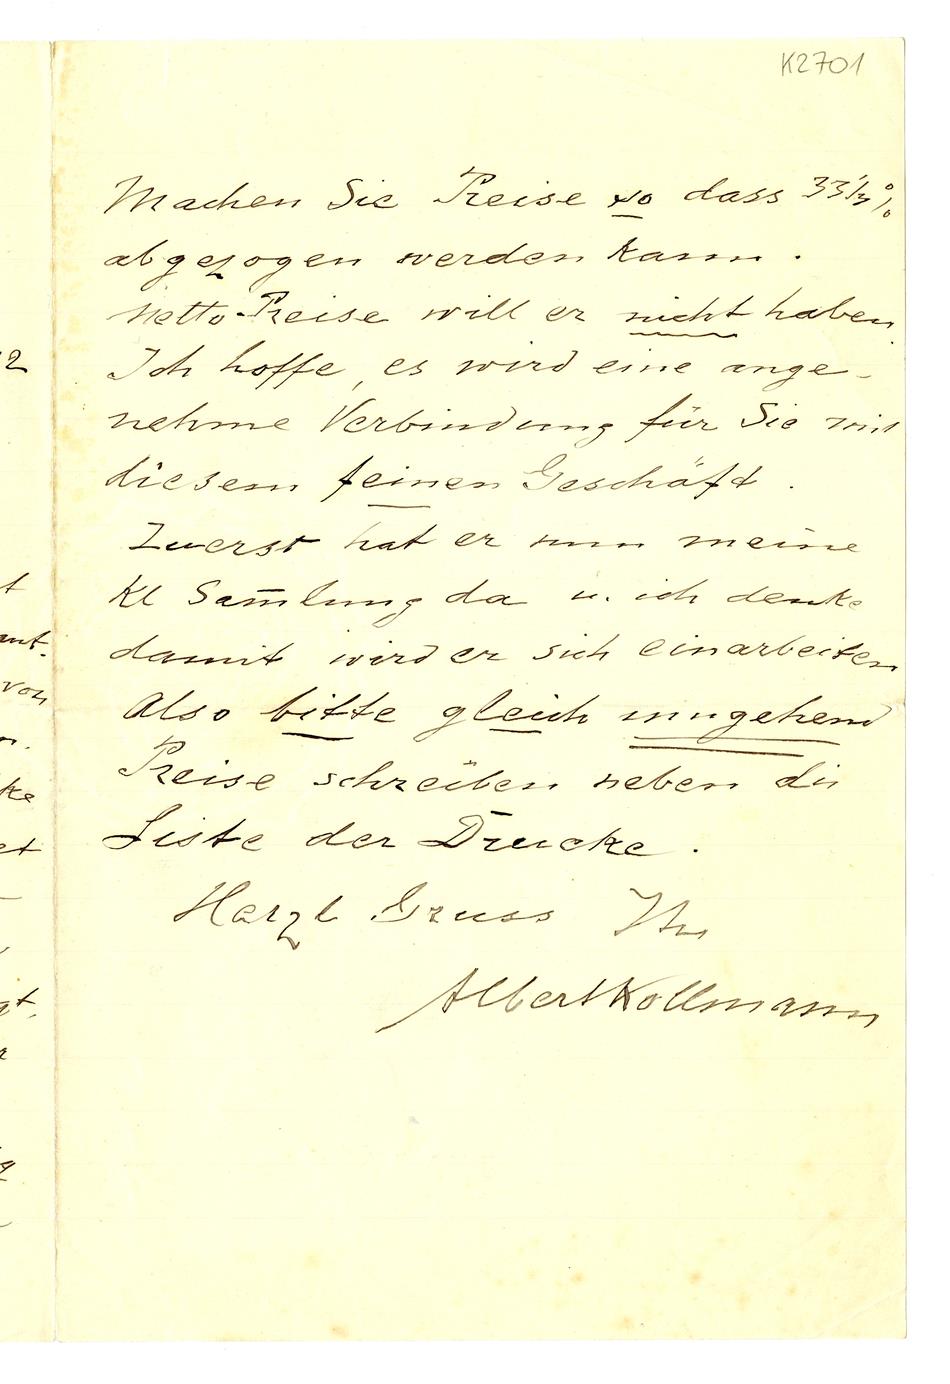 K2701
Machen Sie Preise so dass 33 1/3 %
abgezogen werden kann.
Netto-Preise will er nicht haben.
Ich hoffe, es wird eine ange-
nehme Verbindung für Sie mit
diesem feinen Geschäft.
Zuerst hat er nun meine
Kl Sam̅lung da u. ich denke
damit wird er sich einarbeiten
Also bitte gleich umgehend
Preise schreiben neben die
Liste der Drucke.
Herzl Gruss Ihr
Albert Kollmann